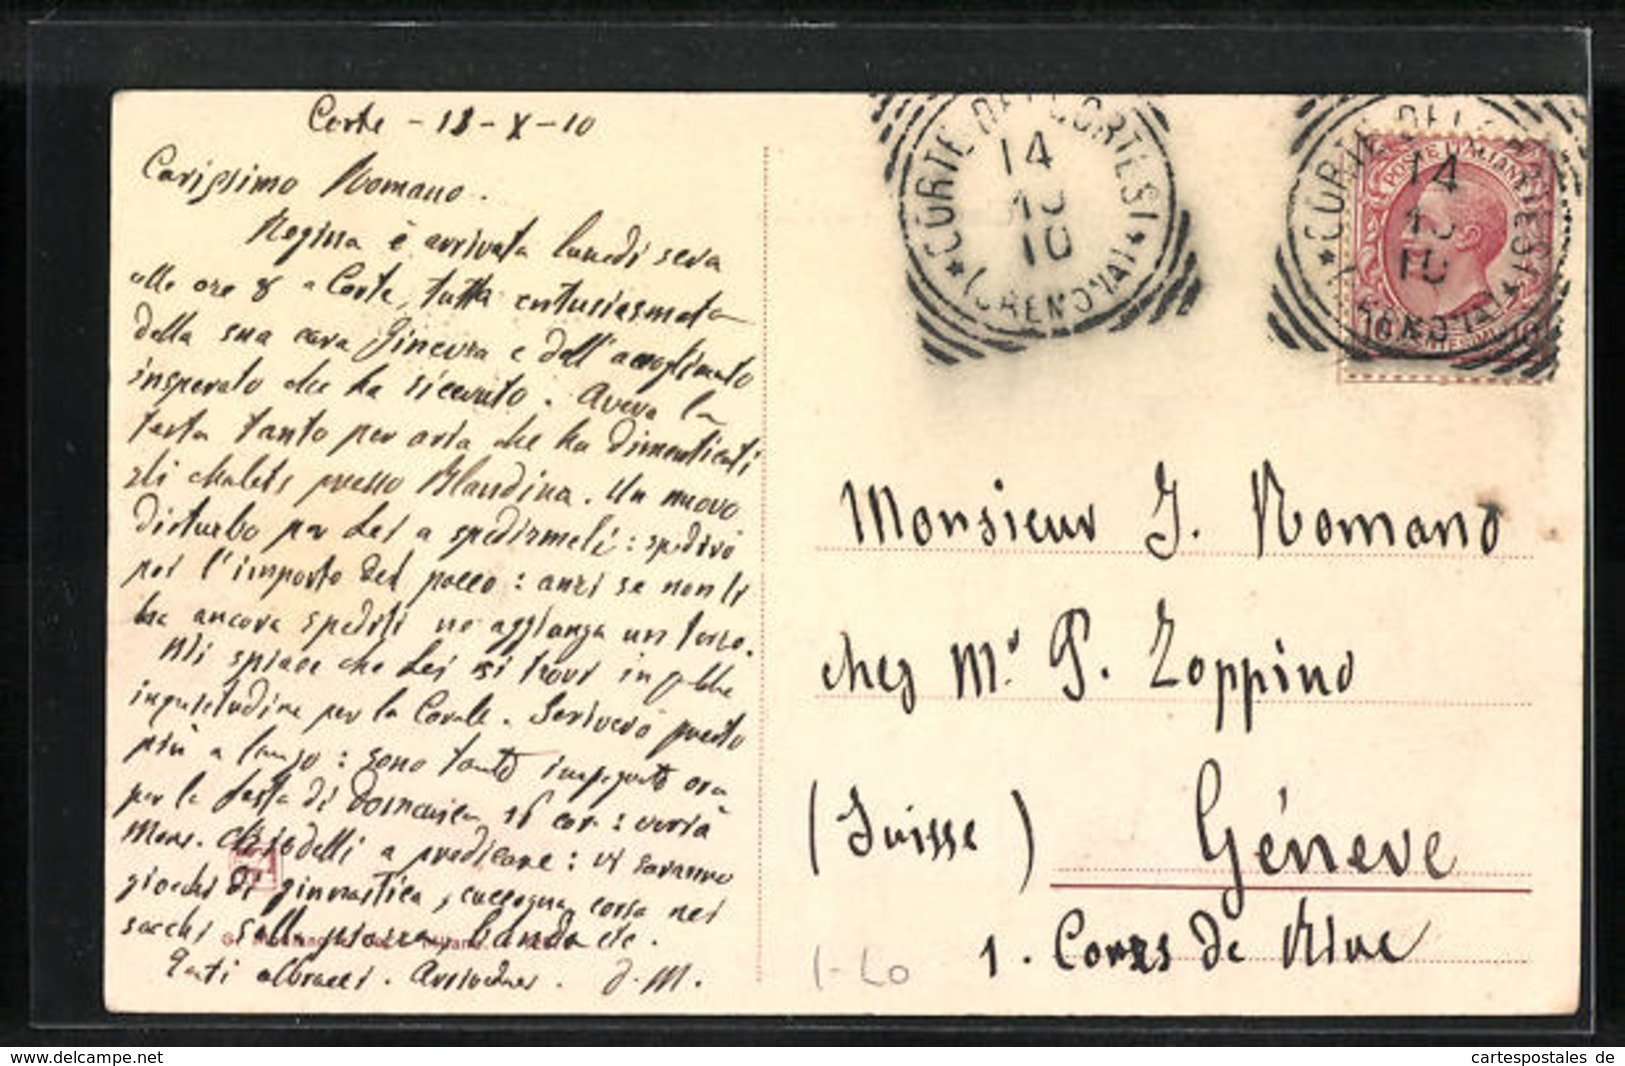 Corte - 13 - X - 10
Carissimo Romano.
Regina è arrivata lunedì sera
alle ore 8 a Corte, tutta entusiasmata
della sua cara Ginevra e dell'accoglimento
insperato che ha ricevuto. Aveva la
testa tanto per aria che ha dimenticati
gli chalets presso Blandina. Un nuovo
disturbo per Lei a spedirmeli: spedirò
poi l'importo del pacco: anzi se non li
ha ancora spediti ne aggiunga un terzo.
Mi spiace che Lei si trovi in
inquietudine per la Corale. Scriverò presto
più a lungo: sono tanto impegnato ora
per la festa di domenica 16 cor: verrà
Mons. a predicare: vi saranno
giochi di ginnastica, cuccagna, corsa nei
sacchi sulla piazza, banda etc.
Tanti abbracci. J. M.
CORTE DEI CORTESI
14
10
10
(CREMONA)
CORTE DEI CORTESI
14
10
10
(CREMONA)
POSTE ITALIANE
10 CENTESIMI 10
Monsieur J. Romano
chez Mr. P. Zoppino
(Suisse) Génève
1. Cours de Rive
1-L0
www.delcampe.net
cartespostales de